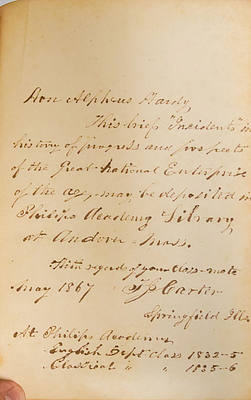 Hon Alpheus Hardy,
This brief Incidents in
history of progress and prospects
of the Great National Enterprise
of the age, may be deposited in
Philips Academy Library,
at Andover Mass.
With regards of your Class-mate
May 1867 Carter
Springfield Ills.
At Philips Academy
English Dept Class 1832-5
Classical " " 1835-6